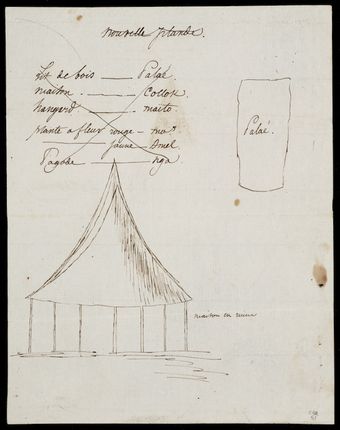 nouvelle
Lit de bois — Palaé.
maison — Collou
hangard — maito
plante a fleur rouge — mo
jaune — Douel
Pagode — nga
Palaé.
maison en